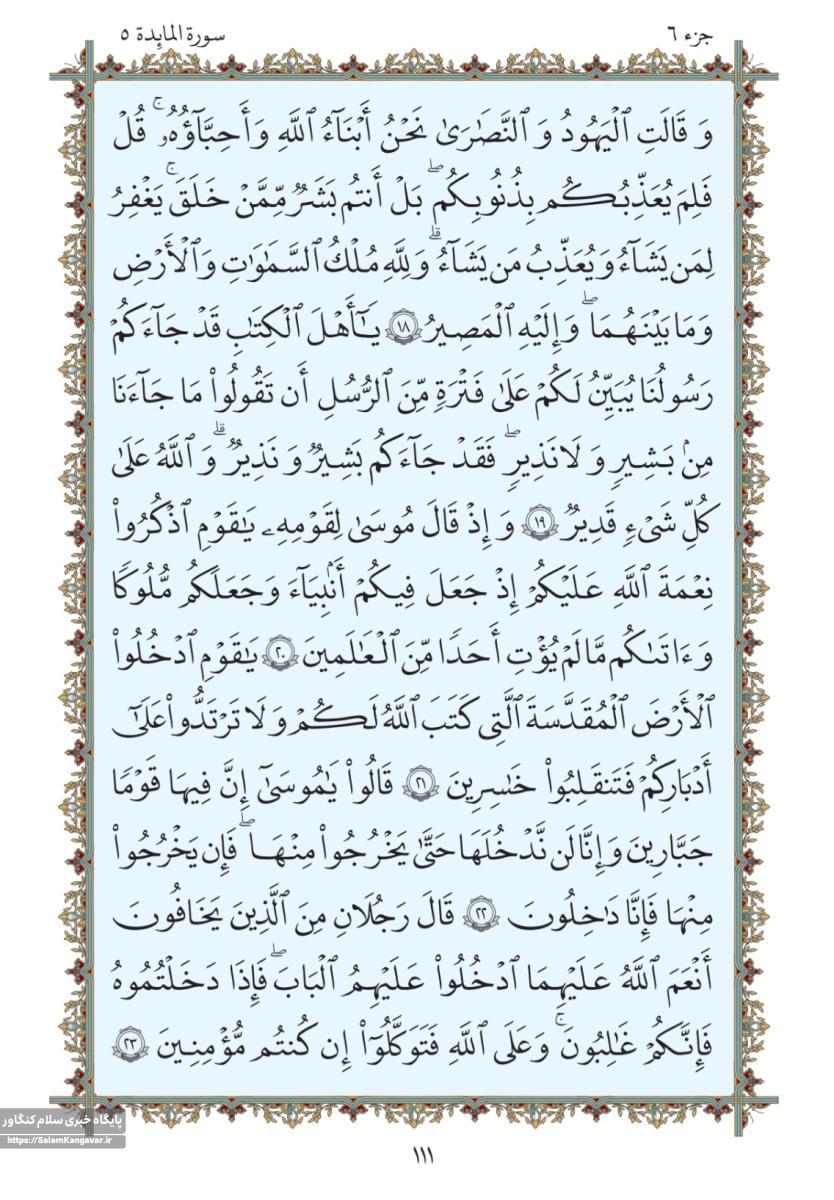 جزء ٦
سورة المائدة ٥
وَ قَالَتِ ٱلْيَهُودُ وَ ٱلنَّصَٰرَىٰ نَحْنُ أَبْنَٰٓؤُاْ ٱللَّهِ وَأَحِبَّٰٓؤُهُۥ ۚ قُلْ
فَلِمَ يُعَذِّبُكُم بِذُنُوبِكُم ۖ بَلْ أَنتُم بَشَرٌ مِّمَّنْ خَلَقَ ۚ يَغْفِرُ
لِمَن يَشَآءُ وَ يُعَذِّبُ مَن يَشَآءُ ۗ وَلِلَّهِ مُلْكُ ٱلسَّمَٰوَٰتِ وَٱلْأَرْضِ
وَمَا بَيْنَهُمَا ۖ وَ إِلَيْهِ ٱلْمَصِيرُ ١٨ يَٰٓأَهْلَ ٱلْكِتَٰبِ قَدْ جَآءَكُمْ
رَسُولُنَا يُبَيِّنُ لَكُمْ عَلَىٰ فَتْرَةٍ مِّنَ ٱلرُّسُلِ أَن تَقُولُواْ مَا جَآءَنَا
مِنۢ بَشِيرٍ وَ لَا نَذِيرٍ ۖ فَقَدْ جَآءَكُم بَشِيرٌ وَ نَذِيرٌ ۗ وَ ٱللَّهُ عَلَىٰ
كُلِّ شَىْءٍ قَدِيرٌ ١٩ وَ إِذْ قَالَ مُوسَىٰ لِقَوْمِهِۦ يَٰقَوْمِ ٱذْكُرُواْ
نِعْمَةَ ٱللَّهِ عَلَيْكُمْ إِذْ جَعَلَ فِيكُمْ أَنۢبِيَآءَ وَ جَعَلَكُم مُّلُوكًا
وَ ءَاتَىٰكُم مَّا لَمْ يُؤْتِ أَحَدًا مِّنَ ٱلْعَٰلَمِينَ ٢٠ يَٰقَوْمِ ٱدْخُلُواْ
ٱلْأَرْضَ ٱلْمُقَدَّسَةَ ٱلَّتِى كَتَبَ ٱللَّهُ لَكُمْ وَ لَا تَرْتَدُّواْ عَلَىٰٓ
أَدْبَارِكُمْ فَتَنقَلِبُواْ خَٰسِرِينَ ٢١ قَالُواْ يَٰمُوسَىٰٓ إِنَّ فِيهَا قَوْمًا
جَبَّارِينَ وَ إِنَّا لَن نَّدْخُلَهَا حَتَّىٰ يَخْرُجُواْ مِنْهَا ۖ فَإِن يَخْرُجُواْ
مِنْهَا فَإِنَّا دَٰخِلُونَ ٢٢ قَالَ رَجُلَانِ مِنَ ٱلَّذِينَ يَخَافُونَ
أَنْعَمَ ٱللَّهُ عَلَيْهِمَا ٱدْخُلُواْ عَلَيْهِمُ ٱلْبَابَ ۖ فَإِذَا دَخَلْتُمُوهُ
فَإِنَّكُمْ غَٰلِبُونَ ۚ وَ عَلَى ٱللَّهِ فَتَوَكَّلُوٓاْ إِن كُنتُم مُّؤْمِنِينَ ٢٣
پایگاه خبری سلام کنگاور
https://SalamKangavar.ir
١١١